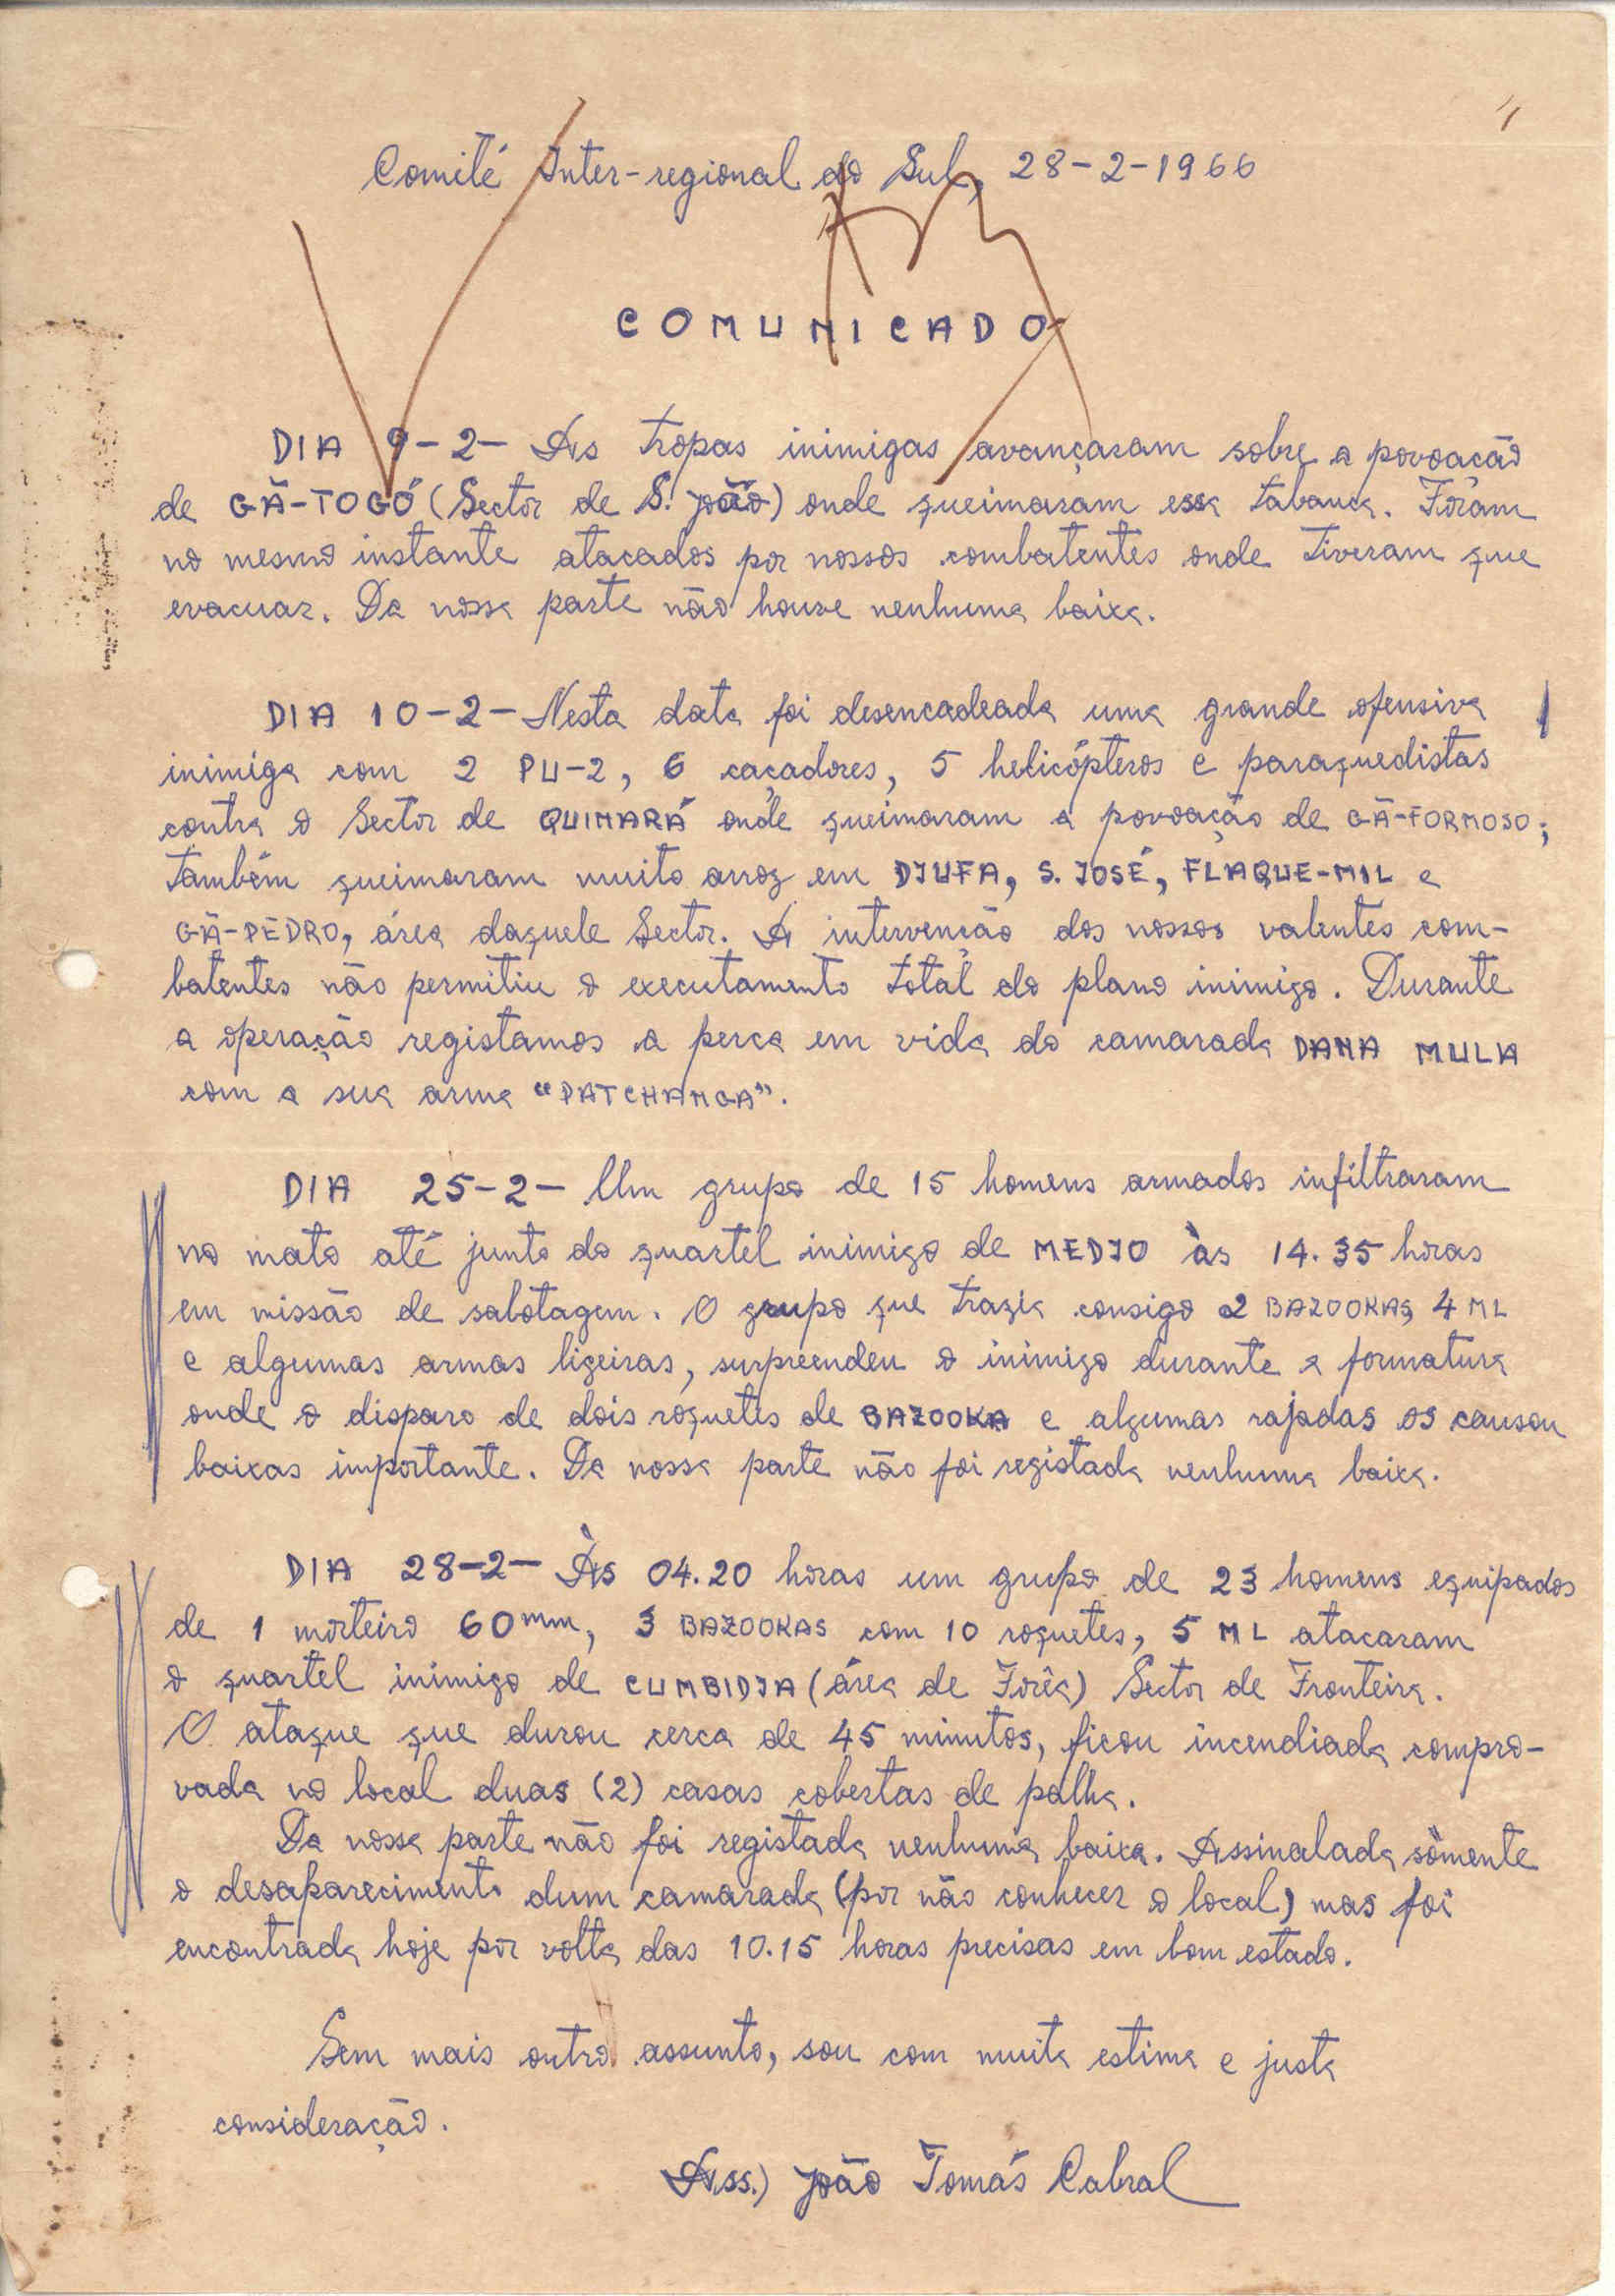 Comité Inter-regional do Sul, 28-2-1966
COMUNICADO
DIA 9-2- As tropas inimigas avançaram sobre a povoação
de GÃ-TOGÓ (Sector de S. João) onde queimaram essa tabanca. Foram
no mesmo instante atacados por nossos combatentes onde tiveram que
evacuar. Da nossa parte não houve nenhuma baixa.
DIA 10-2- Nesta data foi desencadeada uma grande ofensiva
inimiga com 2 PU-2, 6 caçadores, 5 helicópteros e paraquedistas
contra o Sector de QUINARÁ onde queimaram a povoação de GÃ-FORMOSO;
também queimaram muito arroz em DJUFA, S. JOSÉ, FLAQUE-MIL e
GÃ-PEDRO, área daquele Sector. A intervenção dos nossos valentes com-
batentes não permitiu o executamento total do plano inimigo. Durante
a operação registamos a perca em vida do camarada DANA MULA
com a sua arma "PATCHANGA".
DIA 25-2- Um grupo de 15 homens armados infiltraram
no mato até junto do quartel inimigo de MEDJO às 14.35 horas
em missão de sabotagem. O grupo que trazia consigo 2 BAZOOKAS, 4 ML
e algumas armas ligeiras, surpreendeu o inimigo durante a formatura
onde o disparo de dois roquetes de BAZOOKA e algumas rajadas os causou
baixas importante. Da nossa parte não foi registada nenhuma baixa.
DIA 28-2- Às 04.20 horas um grupo de 23 homens equipados
de 1 morteiro 60mm, 3 BAZOOKAS com 10 roquetes, 5 ML atacaram
o quartel inimigo de CUMBIDJA (área de Forêa) Sector de Fronteira.
O ataque que durou cerca de 45 minutos, ficou incendiada compro-
vada no local duas (2) casas cobertas de palha.
Da nossa parte não foi registada nenhuma baixa. Assinalada sòmente
o desaparecimento dum camarada (por não conhecer o local) mas foi
encontrada hoje por volta das 10.15 horas precisas em bom estado.
Sem mais outro assunto, sou com muita estima e justa
consideração.
Ass.) João Tomás Cabral